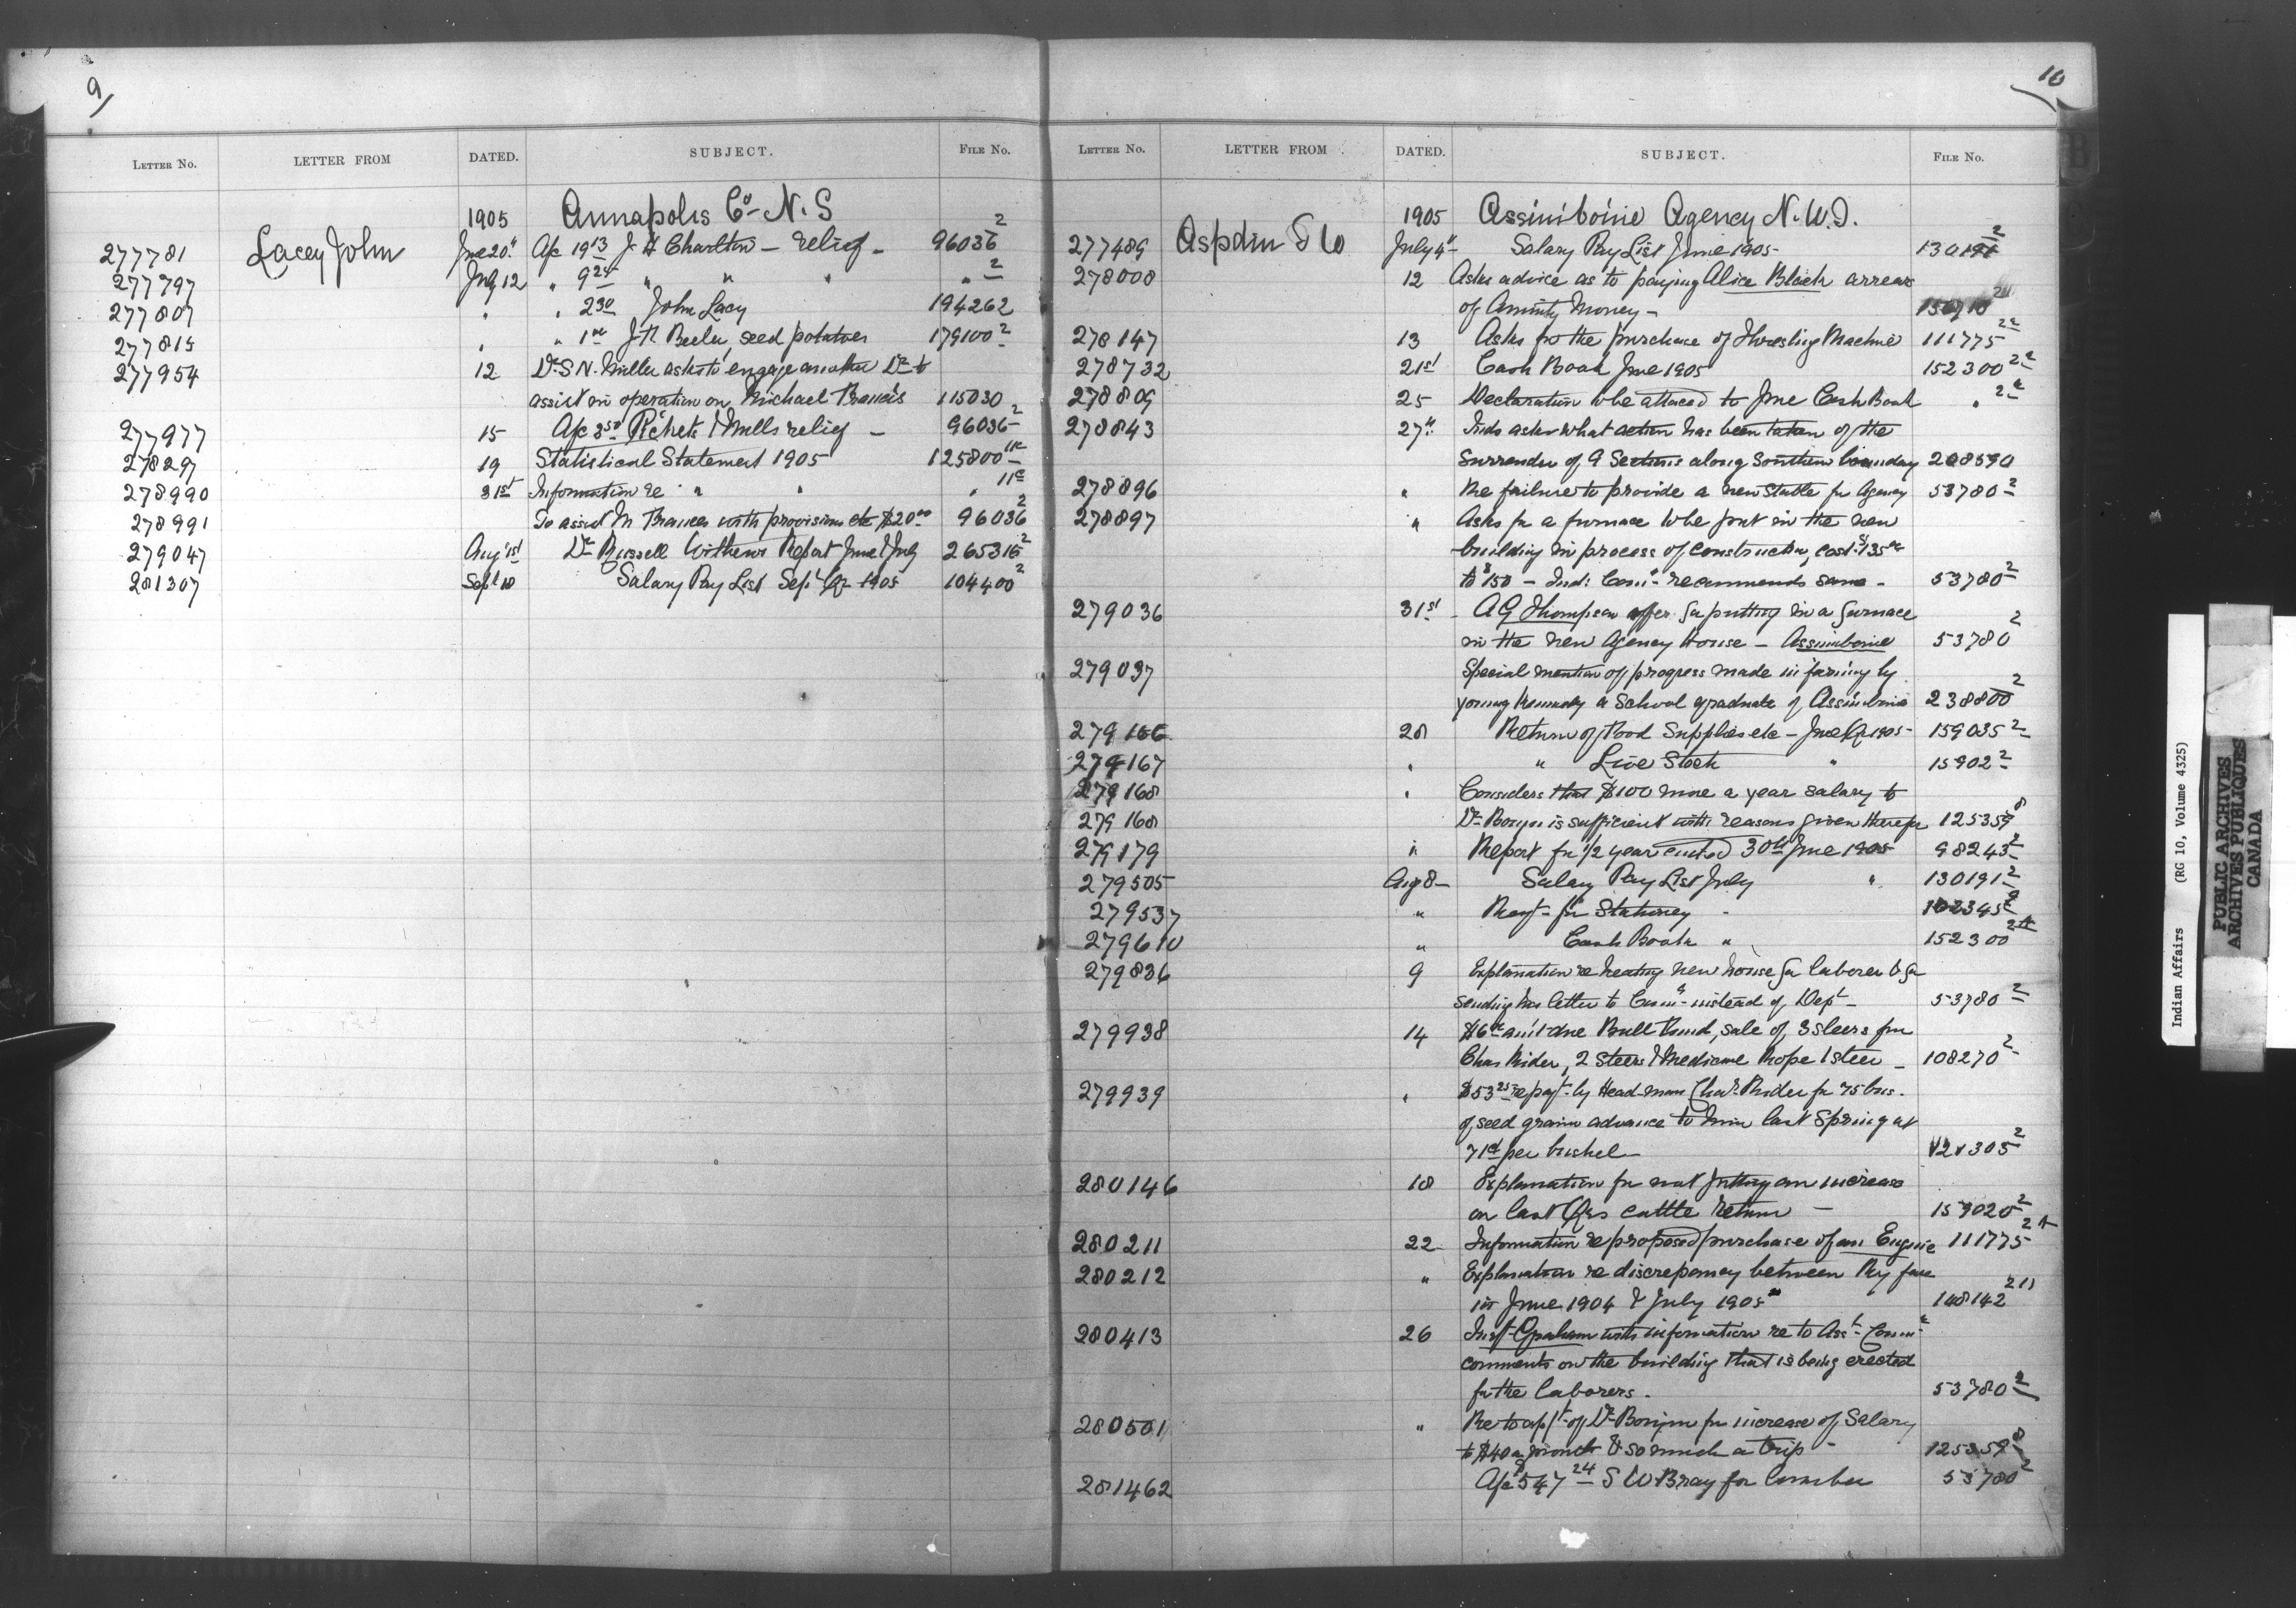 9
LETTER NO. LETTER FROM DATED. SUBJECT. FILE NO.
1905 Annapolis Co- N.S
277781 Lacey John June 20" A/c 19 13 J H Charlton - relief - 96036 2
277797 July 12 " 9 25 " " " " 2
277807 " " 2 30 John Lacy 194262
277815 " " 1 J R Beeler, seed potatoes 179100 2
277954 12 Dr S N. Miller asks to engage another Dr to
assist in operation on Michael Francis 115030
277977 15 A/c 3 50 Pickets & Mills relief - 96036 2
278297 19 Statistical Statement 1905 125800 11c
278990 31st Information re " " " 11c
278991 To assist M Frances with provisions etc $20 00 96036 2
279047 Aug 1st Dr Russell Witheres Report June & July 265315 2
281307 Sept 18 Salary Pay List Sept Qr 1905 104400 2
10
LETTER NO. LETTER FROM DATED. SUBJECT. FILE NO.
1905 Assiniboine Agency N.W.T.
277489 Aspdin T W July 4" Salary Pay List June 1905 - 130191 2
278008 12 Asks advice as to paying Alice Black arrears
of Annuity Money -
278147 13 Asks for the purchase of Threshing Machine 111775 2a
278732 21st Cash Book June 1905 152300 2a
278809 25 Declaration to be attached to June Cash Book " 2a
278843 27" Inds asks what action has been taken of the
surrender of 9 Sections along Southern boundary 208590
278896 " Re failure to provide a new stable for Agency 53780 2
278897 " Asks for a furnace to be put in the new
building in process of construction, cost $135 00
to $150 - Ind: Com'r recommends same - 53780 2
279036 31st - A G Thompson offer for putting in a furnace
in the new Agency House - Assiniboine 53780 2
279037 Special mention of progress made in farming by
young Kennedy a School graduate of Assiniboine 238800 2
279166 28 Return of Food Supplies etc - June Qr 1905 - 159035 2
279167 " " Live Stock " 15902 2
279168 " Considers that $100 more a year salary to
279168 Dr Bouju is sufficient with reasons given therefor 125359 8
279179 " Report for 1/2 year ended 30th June 1905 98243 2
279505 Aug 8 - Salary Pay List July " 130191 2
279537 " Reqt - for Stationery - 102345 2
279610 " Cash Book " 152300 2a
279836 9 Explanation re heating new house for laborer & for
sending his letter to Com'r instead of Dept - 53780 2
279938 14 $6 00 am't due Bull Fund, sale of 3 steers from
Chas Rider, 2 Steers & Medicine Rope 1 steer - 108270 2
279939 " $53 25 repay't by Head-man Chas Rider for 75 bus.
of seed grain advance to him last Spring at
71c per bushel - 121305 2
280146 18 Explanation for not putting an increase
on last Qrs cattle Return - 159020 2
280211 22 Information re proposed purchase of an Engine 111775 2a
280212 " Explanation re discrepancy between Ry fare
in June 1904 & July 1905 148142 211
280413 26 Insp't Graham with information re to Ass't Com'r
comments on the building that is being erected
for the laborers. 53780 2
280501 " Re to appl't of Dr Bouju for increase of Salary
to $40 a month & so much a trip - 125359 8
281462 A/c $547 24 S W Bray for lumber 53780 2
Indian Affairs (RG 10, Volume 4325)
PUBLIC ARCHIVES
ARCHIVES PUBLIQUES
CANADA